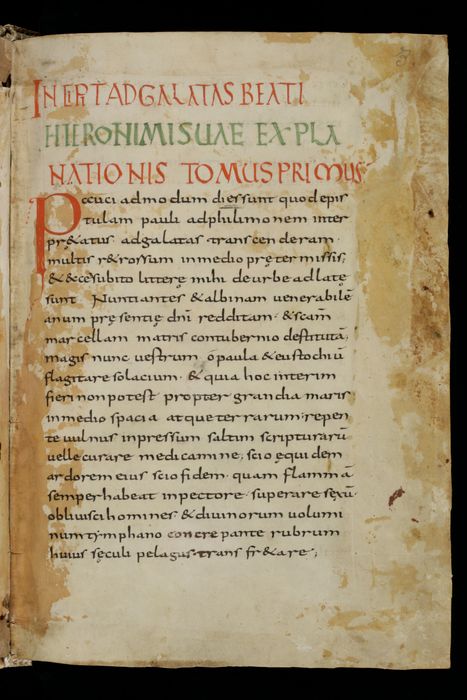 INCIPT AD GALATAS BEATI
HIERONIMI SUAE EXPLA
NATIONIS TOMUS PRIMUS
Pauci admodum dies sunt quod epis
tulam pauli adphilimonem inter
pręt&atus adgalatas transcenderam·
multis r&rorsum inmedio pręter missis,
& &ce subito litterę mihi deurbe adlatę
sunt Nuntiantes & albinam venerabilē
anum pręsentię dn̄i redditam· & scam̄
marcellam matris contubernio destitutā,
magis nunc vestrum o paula & eustochiū
flagitare solacium· & quia hoc interim
fieri nonpotest propter grandia maris
inmedio spacia atque terrarum· repen
te vulnus inpressum saltim scripturarū
velle curare medicamine, scio equidem
ardorem eius scio fidem quam flammā
semper habeat inpectore· superare sexū·
oblivisci homines & divinorum volumi
num tymphano concrepante rubrum
huius sęculi pelagus transfr&are;